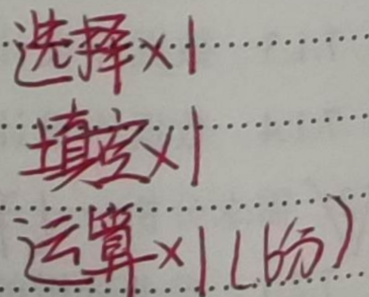 选择×1
填空×1
运算×1(6分)